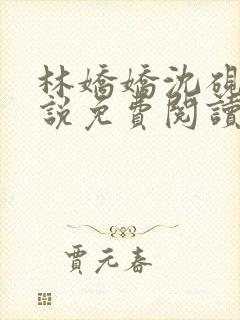 林嬌嬌沈硯
說免費閱讀
賈元春